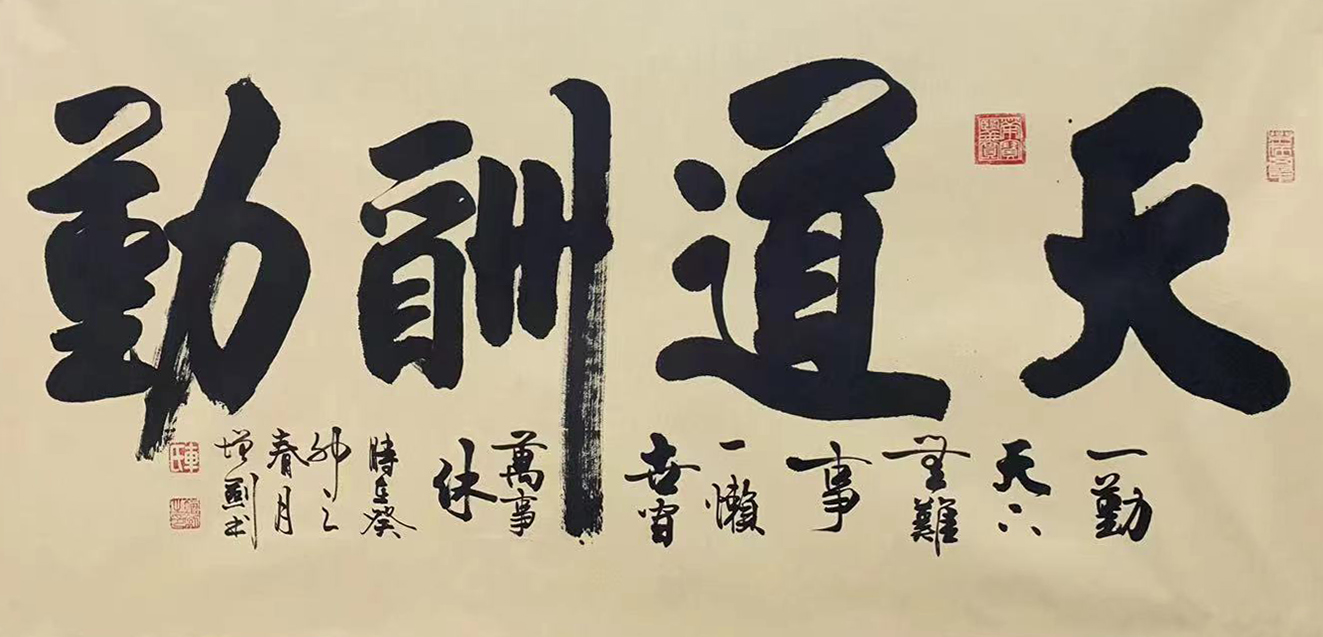 天道酬勤
一勤
天下
無難
事
一懶
世間
萬事
休
時在癸
卯之
春月
增剛书
車氏